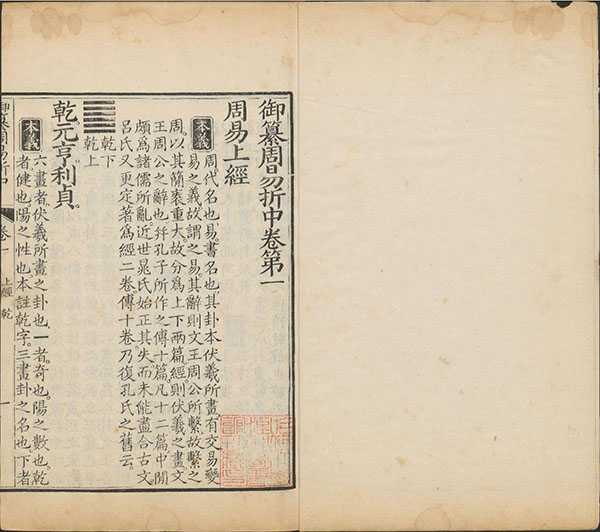 御纂周易折中卷第一
周易上經
本義 周代名也易書名也其卦本伏羲所畫有交易變
易之義故謂之易其辭則文王周公所繫故繫之
周以其簡袠重大故分爲上下兩篇經則伏羲之畫文
王周公之辭也幷孔子所作之傳十篇凡十二篇中閒
頗爲諸儒所亂近世晁氏始正其失而未能盡合古文
呂氏又更定著爲經二卷傳十卷乃復孔氏之舊云
䷀ 乾下
乾上
乾元亨利貞
本義 六畫者伏羲所畫之卦也一者奇也陽之數也乾
者健也陽之性也本註乾字三畫卦之名也下者
御纂周易折中 卷一 上經 乾 一